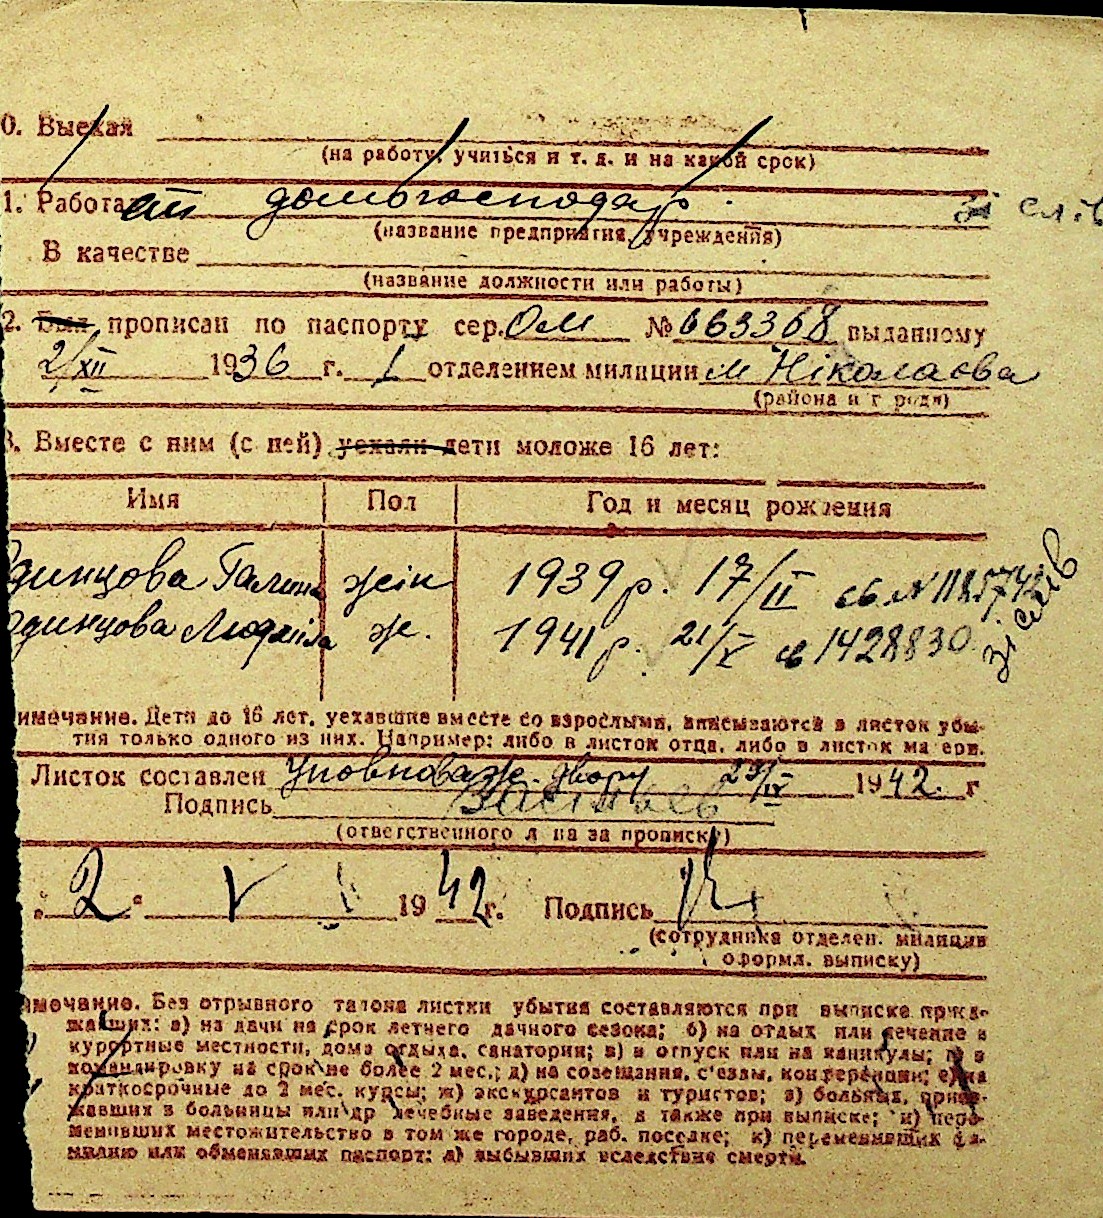 0. Выехал
(на работу, учиться и т. д. и на какой срок)
1. Работа ет домогосподар. зі слів
(название предприятия, учреждения)
В качестве
(название должности или работы)
2. Был прописан по паспорту сер. ОМ № 663368 выданному
2/XII 1936 г. I отделением милиции м Ніколаєва
(района и г рода)
3. Вместе с ним (с ней) уехали дети моложе 16 лет:
Имя Пол Год и месяц рождения
динцова Галина жін 1939 р. 17/II св №
динцова Людміла ж. 1941 р. 21/X св 1428830
зі слів
имечание. Дети до 16 лет, уехавшие вместе со взрослыми, вписываются в листок убы-
тия только одного из них. Например: либо в листок отца, либо в листок матери.
Листок составлен Уповноваж. двору 29/IV 1942. г
Подпись
(ответственного л ца за прописку)
„2“ V 1942 г. Подпись
(сотрудника отделен. милиции
оформл. выписку)
имечание. Без отрывного талона листки убытия составляются при выписке приез-
жавших: а) на дачи на срок летнего дачного сезона; б) на отдых или лечение в
курортные местности, дома отдыха, санатории; в) в отпуск или на каникулы; г) в
командировку на срок не более 2 мес.; д) на совещания, с'езды, конференции; е) на
краткосрочные до 2 мес. курсы; ж) экскурсантов и туристов; з) больных, приез-
жавших в больницы или др лечебные заведения, а также при выписке; и) пере-
менивших местожительство в том же городе, раб. поселке; к) переменивших фа-
милию или обменявших паспорт; л) выбывших вследствие смерти.